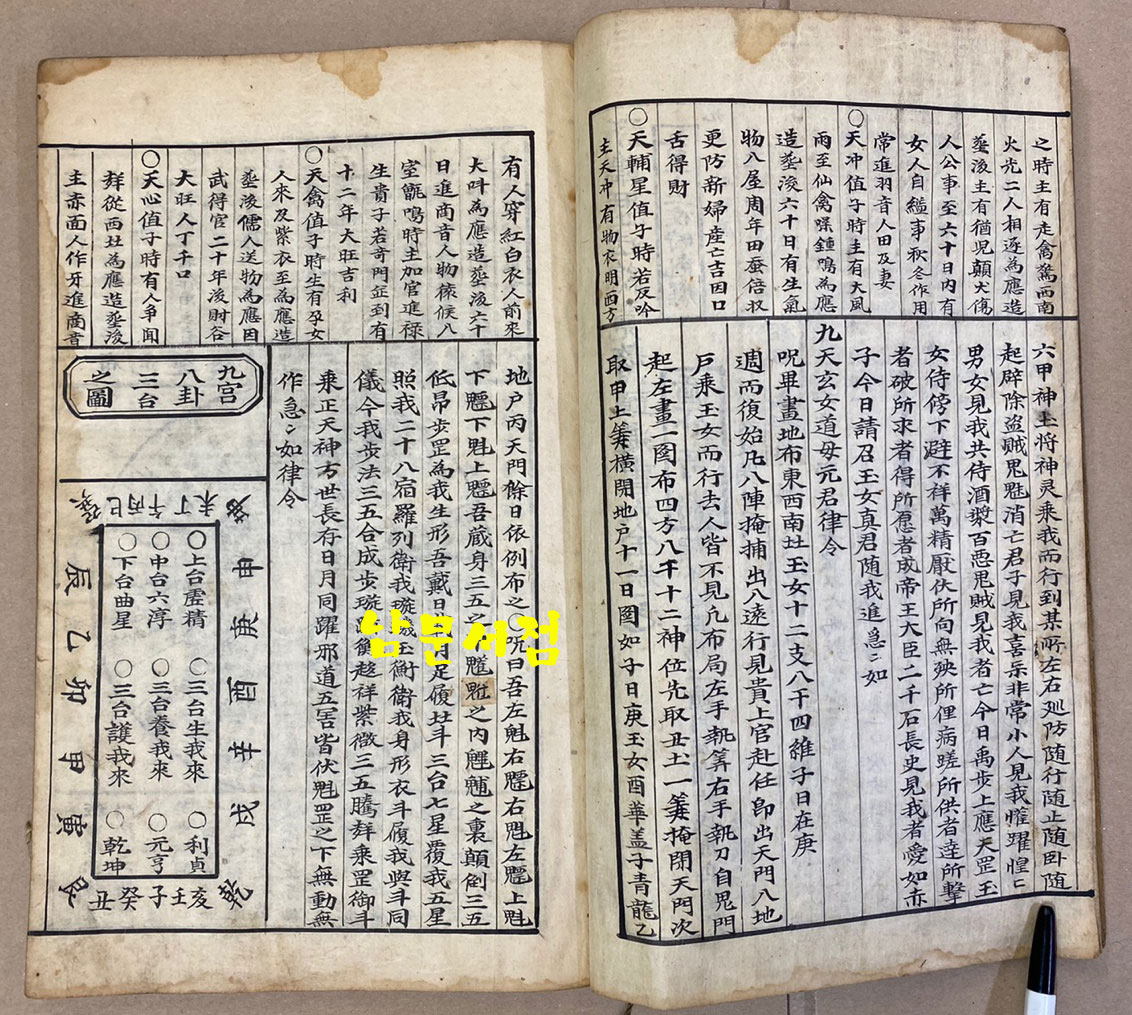 之時主有走禽驚西南
火光二人相逐為應造
塟後主有猶児顛犬傷
人公事至六十日內有
女人自縊事秋冬作用
常進羽音人田及妻
○天冲值子時主有大風
雨至仙禽噪鍾鳴為應
造塟後六十日有生氣
物入屋周年田蚕倍収
更防新婦産亡吉因口
舌得財
○天輔星值子時若反吟
主天冲有物衣明西方
六甲神王將神灵乘我而行到某所左右廵防隨行随止随卧随
起辟除盗賊鬼魅消亡君子見我喜樂非常小人見我懼躍惶〻
男女見我共侍酒漿百悪鬼賊見我者亡今日禹步上應天罡玉
女侍傍下避不祥萬精厭伏所向無殃所俚病蹉所供者逹所擊
者破所求者得所愿者成帝王大臣二千石長史見我者愛如赤
子今日請召玉女真君随我進急〻如
九天玄女道母元君律令
呪畢畫地布東西南北玉女十二支八干四維子日在庚
週而復始凢八陣掩捕出入遠行見貴上官赴任卽出天門入地
戶乘玉女而行去人皆不見凢布局左手執筭右手執刀自鬼門
起左畫一圍布四方八千十二神位先取丑土一筭掩閉天門次
取甲上筭橫閉地戶十一日图如子日庚玉女酉華盖子青龍乙
有人穿紅白衣人前來
大叶為應造塟後六十
日進商音人物猿候入
室甑鳴時主加官進禄
生貴子若奇門並到有
十二年大旺吉利
○天禽值子時生有孕女
人來及紫衣至為應造
塟後儒人送物為應因
武得官二十年後財谷
大旺人丁千口
○天心值子時有人争闻
群從西北為應造塟後
主赤面人作牙進商音
地户丙天門餘日依例布之○呪曰吾左魁右
照我二十八宿羅列衛我璇璣玉衡衛我身形衣斗履我與斗同
乘正天神方世長存日月同躍邪道五害皆伏魁罡之下無動無
作急〻如律令
九宮
八卦
三台
之圖
巳丙午丁未
申庚酉辛戌
乾亥壬子癸丑艮
寅甲卯乙辰
○上台虛精 ○三台生我來 ○利貞
○中台六淳 ○三台養我來 ○元亨
○下台曲星 ○三台護我來 ○乾坤
남문서점